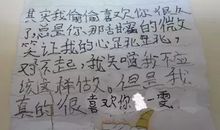 其实我偷偷喜欢你很久
了总是你，那甜甜的微
笑让我的心
对不起，我知道我不应
该这样做。但是我
真的很喜欢你 雯